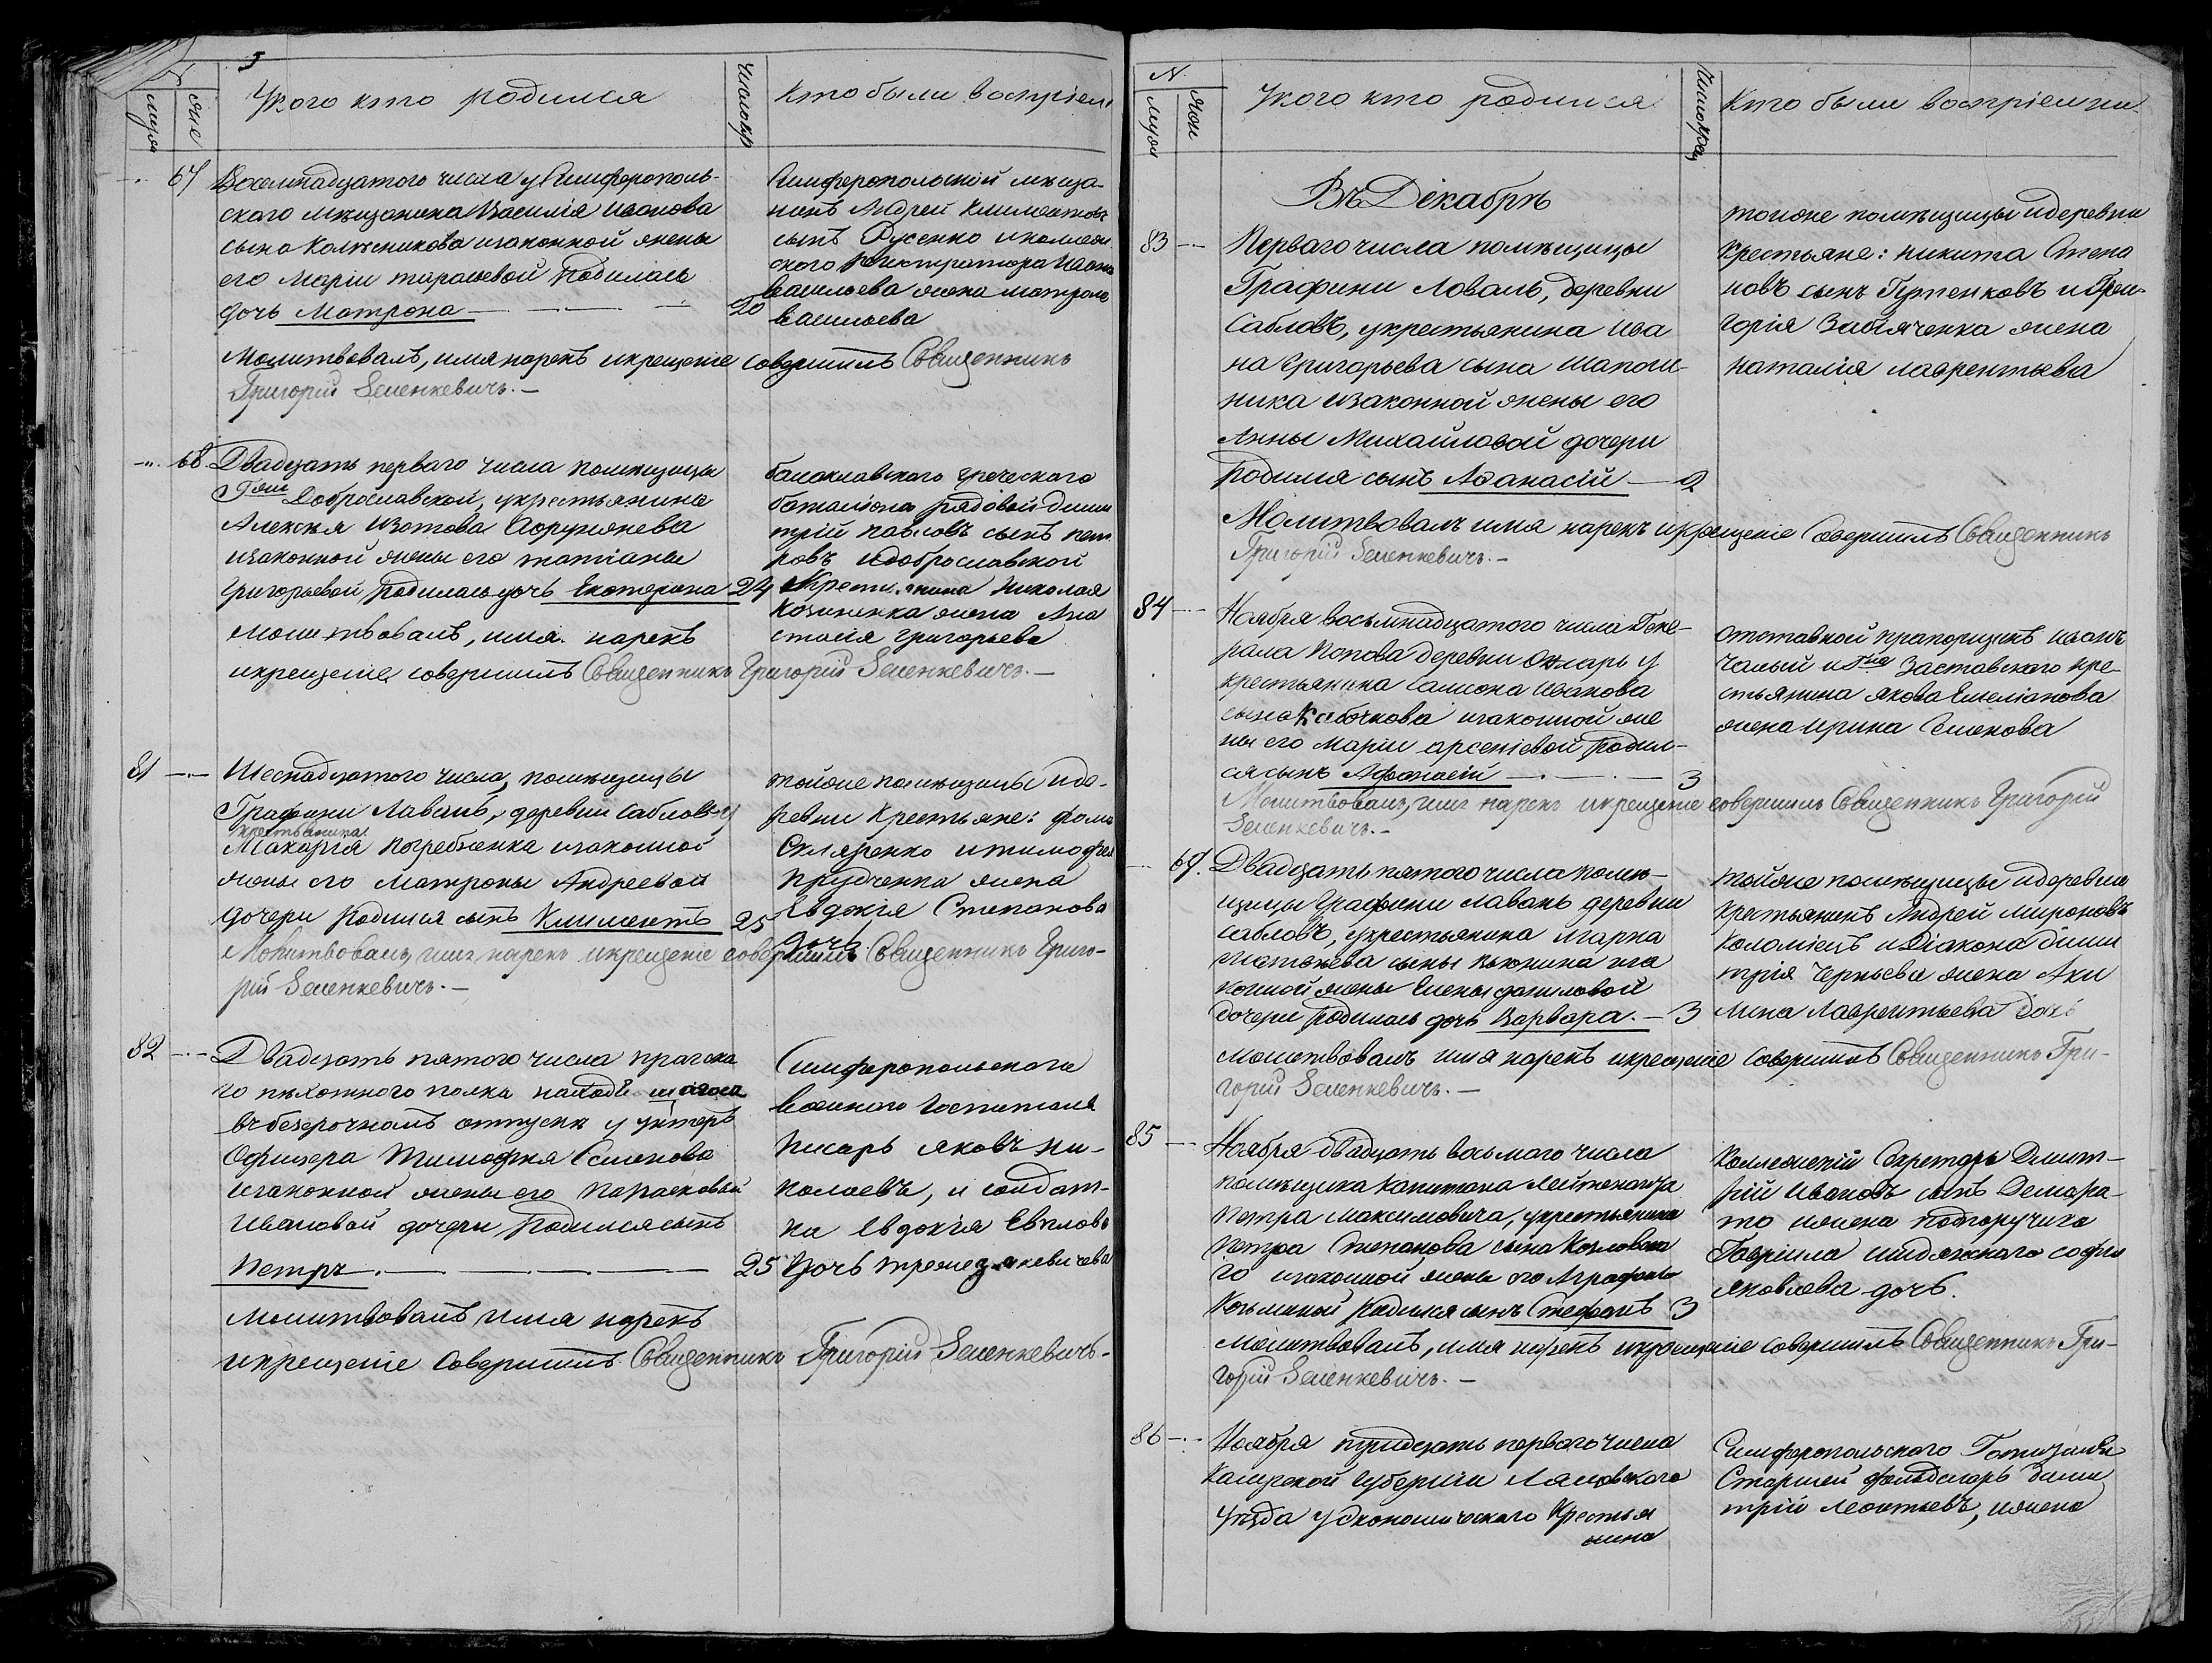 3
№
мужс
жис
У кого кто родился
число кр
Кто были воспріем
67 Восемнадцатого числа у Симферополь-
ского мѣщанина Василія Иванова
сына Колесникова изаконной жены
его Маріи тарасьевой Родилась
дочь Матрона 20
Симферопольскій мѣща-
нинъ Андрей Климентов
сынъ Русенко иколеж
ского Регистратора Ивана
васильева жена матрона
васильева
Молитвовалъ, имя нарекъ икрещеніе совершилъ Священникъ
Григорій Зеленкевичъ.-
68 Двадцать перваго числа помѣщицы
Гжи Доброславской, укрестьянина
Алексѣя Изотова
изаконной жены его татіаны
григорьевой родилась дочь Екатерина 24
балаклавского греческого
баталіона рядовой дими
трій павловъ сынъ пет
ровъ идоброславской
Крестьянина Николая
жена Ана
стасія григорьева
молитвовалъ, имя нарекъ
икрещеніе совершилъ Священникъ Григорій Зеленкевичъ.-
81 Шеснадцатого числа, помѣщицы
Графини Лаваль, деревни Сабловъ у
крестьянина
Макарія Погребненка изаконной
жены его Матроны Андреевой
дочери родился сынъ Климентъ 25
тойже помѣщицы иде-
ревни Крестьяне: фома
Скляренко итимофея
Прудченка жена
Евдокія Степанова
дочь
Молитвовалъ, имя нарекъ икрещеніе совершилъ Священникъ Григо-
рій Зеленкевичъ.-
82 Двадцать пятого числа прагска
го пѣхотного полка находящагося
въ безсрочномъ отпуски у унтеръ
Офицера Тимофея Семенова
изаконной жены его Параскевы
Ивановой дочери родился сынъ
Петръ 25
Симферопольского
военного госпиталя
писарь яковъ ни-
колаевъ, и солдат-
ка Евдокія Евплова
дочь
Молитвовалъ имя нарекъ
икрещеніе совершилъ Священникъ Григорій Зеленкевичъ.-
№
мужс
жен
У кого кто родился
Кто были воспріемни
Въ Декабрѣ
83 Перваго числа помѣщицы
Графини Ловаль, деревни
Сабловъ, укрестьянина Ива
на Григорьева сына Шапош-
ника изаконной жены его
Анны Михайловой дочери
родился сынъ Аѳанасій 2
тойже помѣщицы идеревни
Крестьяне: никита Степа
новъ сынъ игри-
горія жена
наталія лаврентьева
Молитвовалъ имя нарекъ икрещеніе совершилъ Священникъ
Григорій Зеленкевичъ.-
84 Ноября восьмнадцатого числа Гене-
рала Попова деревни у
крестьянина Самсона Иванова
сына изаконной же
ны его Маріи арсеніевой родил-
ся сынъ Афанасій 3
отставной прапорщикъ иванъ
чалый и Заставского кре-
стьянина якова Емеліанова
жена ирина Семенова
Молитвовалъ, имя нарекъ икрещеніе совершилъ Священникъ Григорій
Зеленкевичъ.-
69. Двадцать пятого числа помѣ-
щицы Графини лаваль деревни
сабловъ, укрестьянина Марка
сына иза
конной жены Елены даниловой
дочери родилась дочь Варвара.- 3
тойже помѣщицы идеревни
крестьянинъ Андрей Мироновъ
Коломіецъ идіакона дими
трія Чернѣева жена Аку
лина Лаврентьева дочь
молитвовалъ имя нарекъ икрещеніе совершилъ Священникъ Гри-
горій Зеленкевичъ.-
85 Ноября двадцать восьмого числа
помѣщика капитана Лейтенанта
петра максимовича, укрестьянина
Петра Степанова сына Козловска
го изаконной жены его Аграфены
Козьминой родился сынъ Стефанъ 3
Коллежскій Секретарь Дмит-
рій Ивановъ сынъ Демора-
то ижена подпоручика
Гавріила софія
яковлева дочь.
молитвовалъ, имя нарекъ икрещеніе совершилъ Священникъ Гри-
горій Зеленкевичъ.-
86 Ноября тридцать первого числа
Калужской губерніи
уѣзда уэкономическаго крестья
нина
Симферопольского Гошпиталя
Старшей фельдшеръ дими
трій Леонтьевъ, ижена